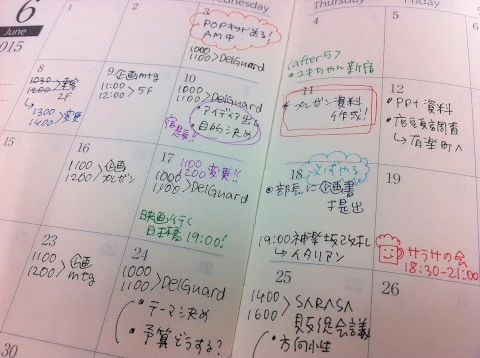 6
June
2015
Wednesday
Thursday
Friday
1
2
3
POPキット送る!
AM中
1000
1100>DelGuard
4
<after5>
新宿
5
8
1030
1200
2F
↳1300
1400>変更
9
企画mtg
11:00
12:00>5F
10
1000
1100>DelGuard
・アイディア出し
・目的決め
宿題!!
11
*プレゼン資料
作成!
12
・PPT資料
・店頭調査
↳有楽町へ
15
16
1100
1200>企画
プレゼン
17
1100
1200変更!!
1000
1100>DelGuard
映画行く
日本橋19:00!
18
必ずやる
・部長に企画書
提出
19:00神楽坂改札
↳イタリアン
19
23
1100
1200>企画
mtg
24
1000
1100>DelGuard
・テーマ決め
・予算どうする?
25
1400
1600>SARASA
販促会議
・方向性
26
サラサの会
18:30-21:00
30